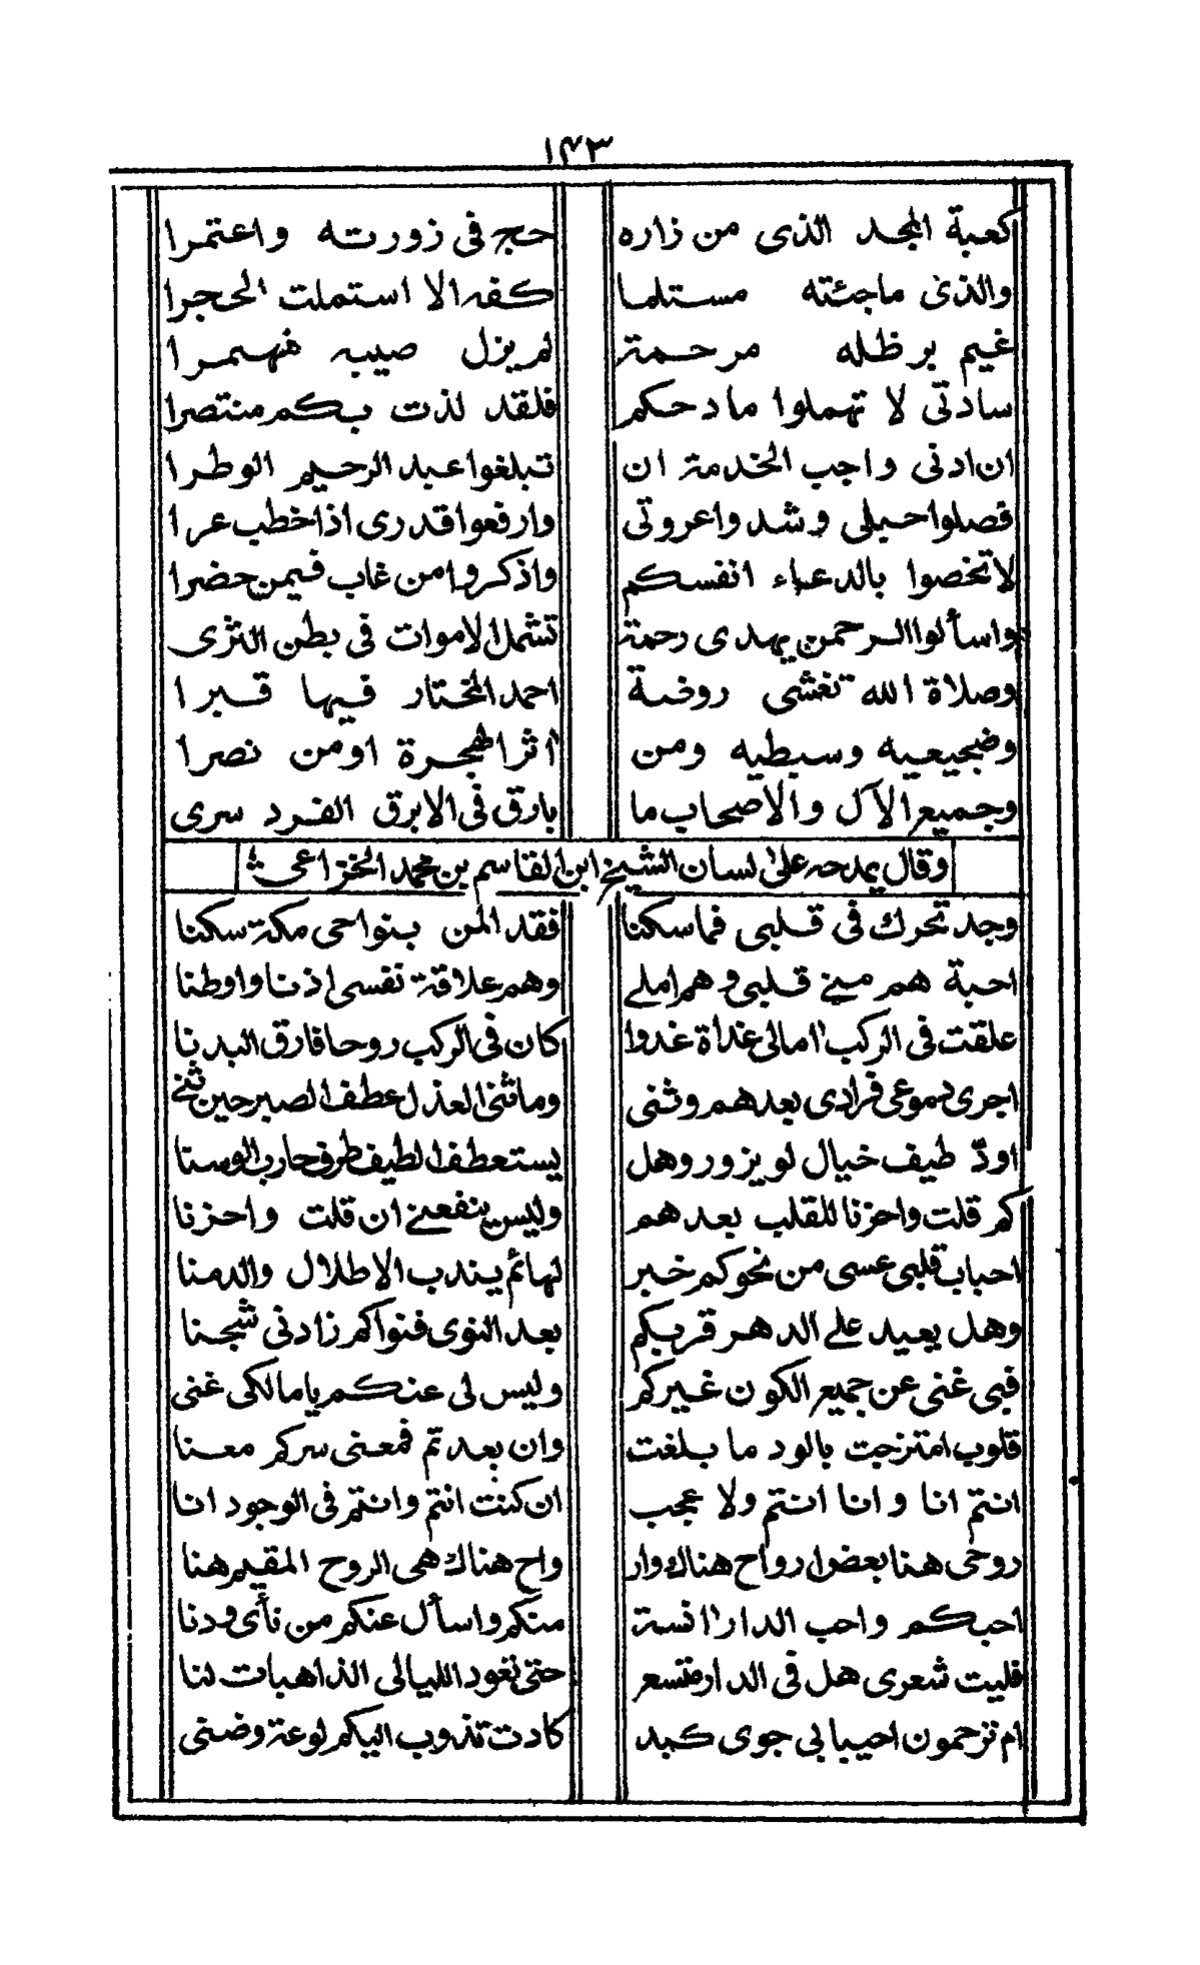 ١٤٣
كعبة المجد الذى من زاره حج فى زورته واعتمرا
والذى ماجئته مستلما كفه الا استملت الحجرا
غيم بر ظله مرحمة لم يزل صيبه منهمرا
سادتى لا تهملوا مادحكم فلقد لذت بكم منتصرا
ان ادنى واجب الخدمة ان تبلغوا عبد الرحيم الوطرا
فصلوا حبلى وشدوا عروتى وارفعوا قدرى اذا خطب عرا
لا تخصوا بالدعاء انفسكم واذكروا من غاب فيمن حضرا
واسألوا الرحمن يهدى رحمة تشمل الاموات فى بطن الثرى
وصلاة الله تغشى روضة احمد المختار فيها قبرا
وضجيعيه وسبطيه ومن اثر الهجرة او من نصرا
وجميع الآل والاصحاب ما بارق فى الابرق الفرد سرى
وقال يمدحه على لسان الشيخ ابن القاسم بن محمد الخزاعى
وجد تحرك فى قلبى فما سكنا فقد المن بنواحى مكة سكنا
احبة هم منى قلبى وهم املى وهم علاقة نفسى اذنا واوطنا
علقت فى الركب امالى غداة غدوا كان فى الركب روحا فارق البدنا
اجرى دموعى فرادى بعدهم وثنى وما ثنى العذل عطف الصبر حين ثنى
اودّ طيف خيال لو يزور وهل يستعطف الطيف طرف حارب الوسنا
كم قلت واحزنا للقلب بعدهم وليس ينفعنى ان قلت واحزنا
احباب قلبى عسى من نحوكم خبر لهائم يندب الاطلال والدمنا
وهل يعيد على الدهر قربكم بعد النوى فنواكم زادنى شجنا
فبى غنى عن جميع الكون غيركم وليس لى عنكم يا مالكى غنى
قلوب امتزجت بالود ما بلغت وان بعدتم فمعنى سركم معنا
انتم انا وانا انتم ولا عجب ان كنت انتم وانتم فى الوجود انا
روحى هنا بعض ارواح هناك وار واح هناك هى الروح المقيم هنا
احبكم واحب الدار انسة منكم واسأل عنكم من نأى ودنا
فليت شعرى هل فى الدار متسع حتى تعود الليالى الذاهبات لنا
ام ترحمون احيبابى جوى كبد كادت تذوب اليكم لوعة وضنى